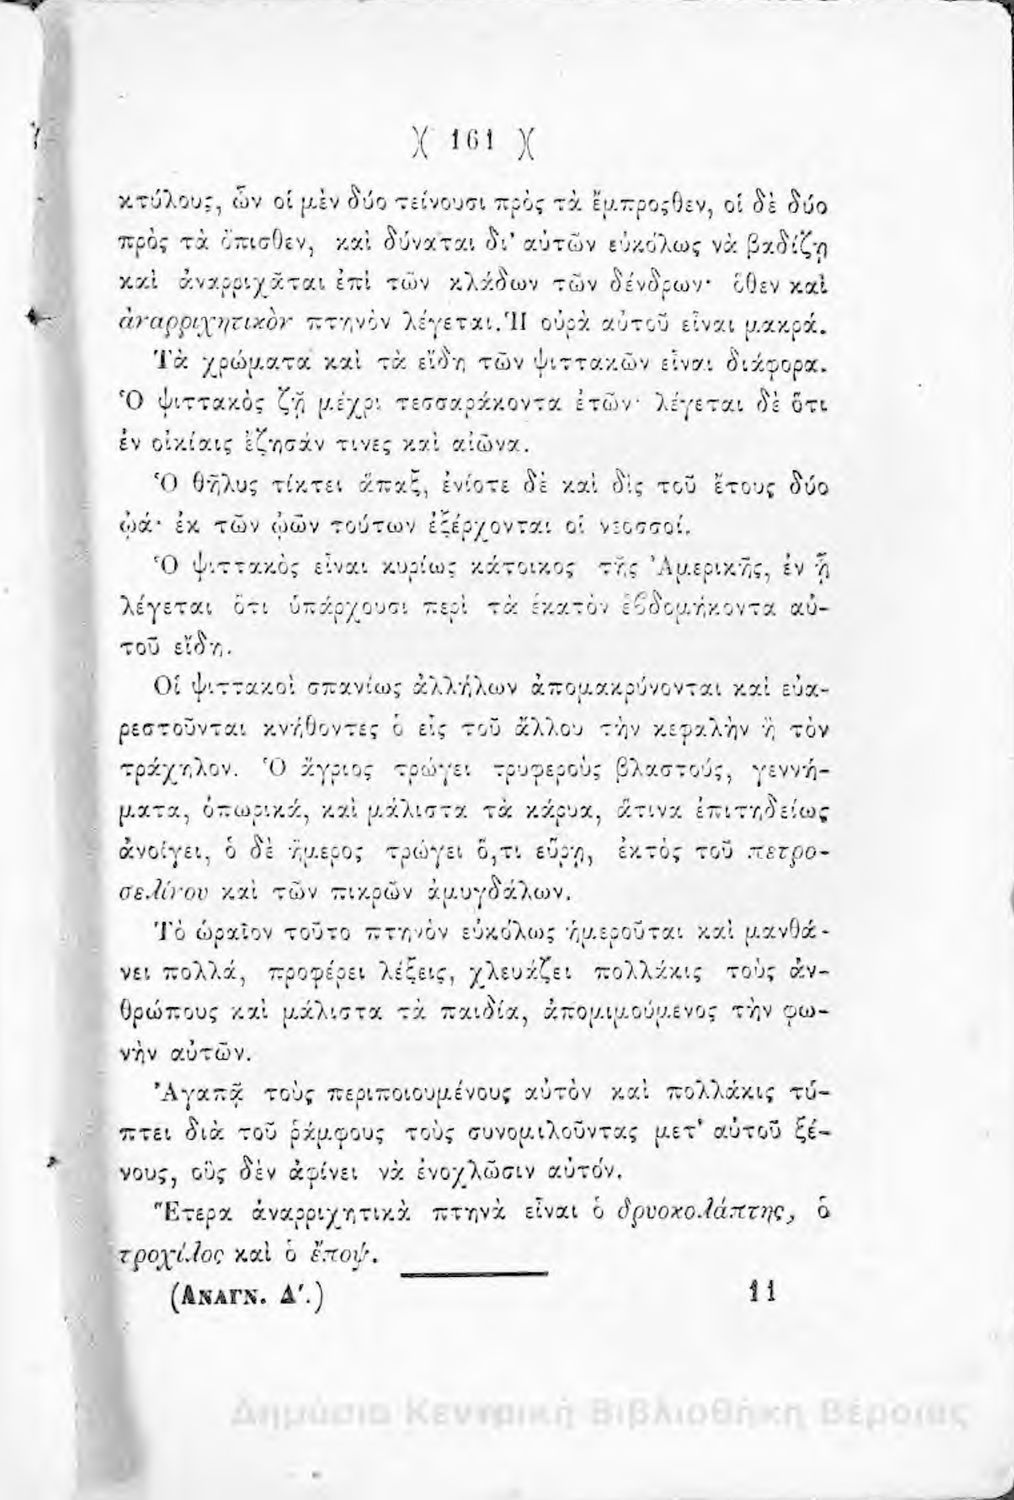 )( 161 )(
κτύλους, ὧν οἱ μὲν δύο τείνουσι πρὸς τὰ ἔμπροςθεν, οἱ δὲ δύο
πρὸς τὰ ὄπισθεν, καὶ δύναται δι᾽ αὐτῶν εὐκόλως νὰ βαδίζῃ
καὶ ἀναρριχᾶται ἐπὶ τῶν κλάδων τῶν δένδρων· ὅθεν καὶ
ἀναρριχητικὸν πτηνὸν λέγεται. Ἡ οὐρὰ αὐτοῦ εἶναι μακρά.
Τὰ χρώματα καὶ τὰ εἴδη τῶν ψιττακῶν εἶναι διάφορα.
Ὁ ψιττακὸς ζῇ μέχρι τεσσαράκοντα ἐτῶν· λέγεται δὲ ὅτι
ἐν οἰκίαις ἔζησάν τινες καὶ αἰῶνα.
Ὁ θῆλυς τίκτει ἅπαξ, ἐνίοτε δὲ καὶ δὶς τοῦ ἔτους δύο
ᾠά· ἐκ τῶν ᾠῶν τούτων ἐξέρχονται οἱ νεοσσοί.
Ὁ ψιττακὸς εἶναι κυρίως κάτοικος τῆς Ἀμερικῆς, ἐν ᾗ
λέγεται ὅτι ὑπάρχουσι περὶ τὰ ἑκατὸν ἑβδομήκοντα αὐ-
τοῦ εἴδη.
Οἱ ψιττακοὶ σπανίως ἀλλήλων ἀπομακρύνονται καὶ εὐα-
ρεστοῦνται κνήθοντες ὁ εἷς τοῦ ἄλλου τὴν κεφαλὴν ἢ τὸν
τράχηλον. Ὁ ἄγριος τρώγει τρυφεροὺς βλαστούς, γεννή-
ματα, ὀπωρικά, καὶ μάλιστα τὰ κάρυα, ἅτινα ἐπιτηδείως
ἀνοίγει, ὁ δὲ ἥμερος τρώγει ὅ,τι εὕρῃ, ἐκτὸς τοῦ πετρο-
σελίνου καὶ τῶν πικρῶν ἀμυγδάλων.
Τὸ ὡραῖον τοῦτο πτηνὸν εὐκόλως ἡμεροῦται καὶ μανθά-
νει πολλά, προφέρει λέξεις, χλευάζει πολλάκις τοὺς ἀν-
θρώπους καὶ μάλιστα τὰ παιδία, ἀπομιμούμενος τὴν φω-
νὴν αὐτῶν.
Ἀγαπᾷ τοὺς περιποιουμένους αὐτὸν καὶ πολλάκις τύ-
πτει διὰ τοῦ ῥάμφους τοὺς συνομιλοῦντας μετ᾽ αὐτοῦ ξέ-
νους, οὓς δὲν ἀφίνει νὰ ἐνοχλῶσιν αὐτόν.
Ἕτερα ἀναρριχητικὰ πτηνὰ εἶναι ὁ δρυοκολάπτης, ὁ
τροχίλος καὶ ὁ ἔποψ.
(ΑΝΑΓΝ. Δ΄.) 11
Δημόσια Κεντρική Βιβλιοθήκη Βέροιας